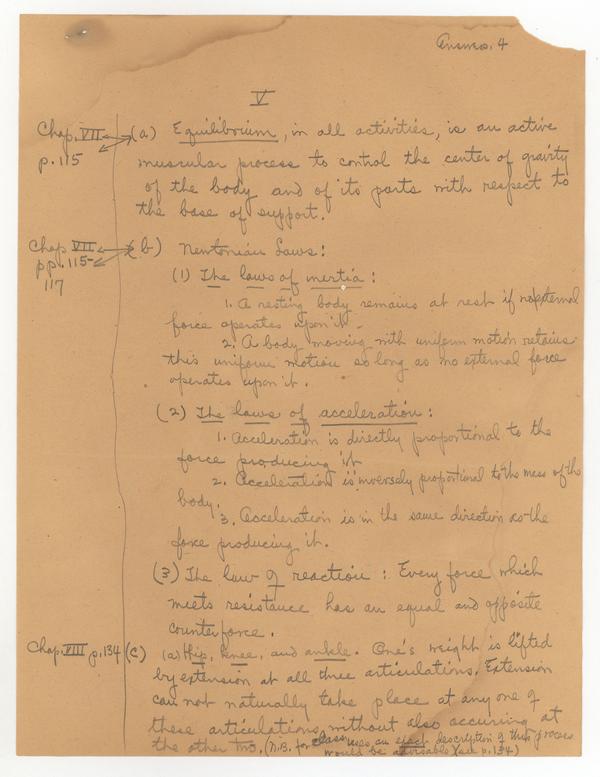 Answers. 4
V
Chap. VII (a) Equilibrium, in all activities, is an active
p. 115 muscular process to control the center of gravity
of the body and of its parts with respect to
the base of support.
Chap VII (b) Newtonian Laws:
pp. 115-
117
(1) The laws of inertia:
1. A resting body remains at rest if no external
force operates upon it.
2. A body moving with uniform motion retains
this uniform motion so long as no external force
operates upon it.
(2) The laws of acceleration:
1. Acceleration is directly proportional to the
force producing it
2. Acceleration is inversely proportional to the mass of the
body.
3. Acceleration is in the same direction as the
force producing it.
(3) The law of reaction: Every force which
meets resistance has an equal and opposite
counterforce.
Chap. VIII p. 134 (c) (a) Hip, knee, and ankle. One's weight is lifted
by extension at all three articulations. Extension
can not naturally take place at any one of
these articulations without also occuring at
the other two. (N.B. for class uses an exact description of this process
would be advisable (see p. 134)